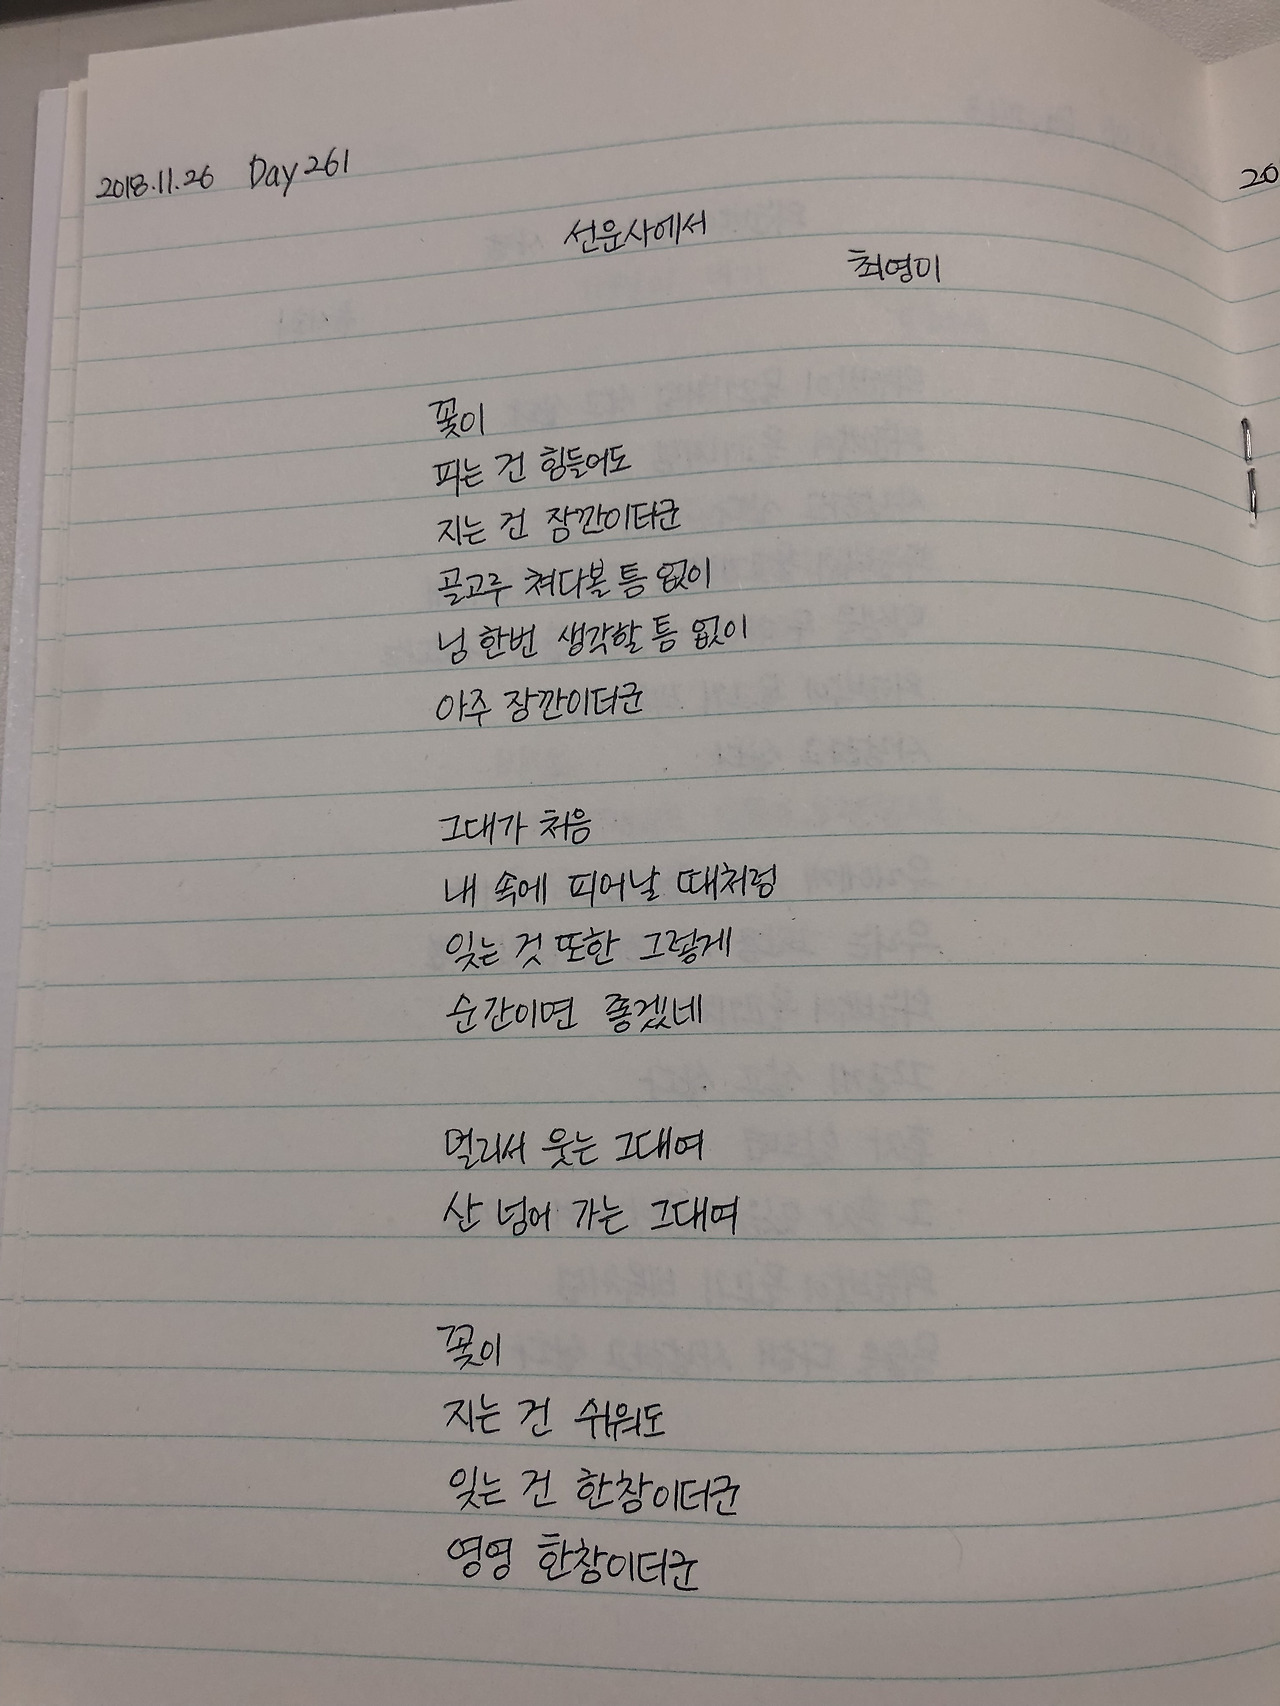 2018.11.26 Day 261
선운사에서
최영미
꽃이
피는 건 힘들어도
지는 건 잠깐이더군
골고루 쳐다볼 틈 없이
님 한번 생각할 틈 없이
아주 잠깐이더군
그대가 처음
내 속에 피어날 때처럼
잊는 것 또한 그렇게
순간이면 좋겠네
멀리서 웃는 그대여
산 넘어 가는 그대여
꽃이
지는 건 쉬워도
잊는 건 한참이더군
영영 한참이더군
20